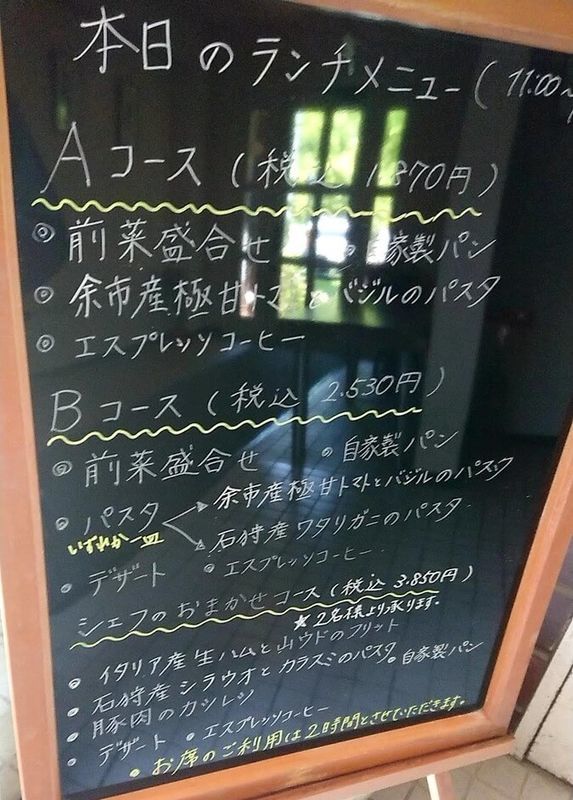 本日のランチメニュー(11:00~
Aコース(税込 1.870円)
◎前菜盛合せ ◎自家製パン
◎余市産極甘トマトとバジルのパスタ
◎エスプレッソコーヒー
Bコース(税込 2.530円)
◎前菜盛合せ ◎自家製パン
◎パスタ 余市産極甘トマトとバジルのパスタ
いずれか一皿 石狩産ワタリガニのパスタ
・デザート ◎エスプレッソコーヒー
シェフのおまかせコース(税込 3.850円)
★2名様より承ります。
・イタリア産生ハムと山ウドのフリット
・石狩産シラウオとカラスミのパスタ ・自家製パン
・豚肉のカツレツ
・デザート ・エスプレッソコーヒー
・お席のご利用は2時間とさせていただきます。